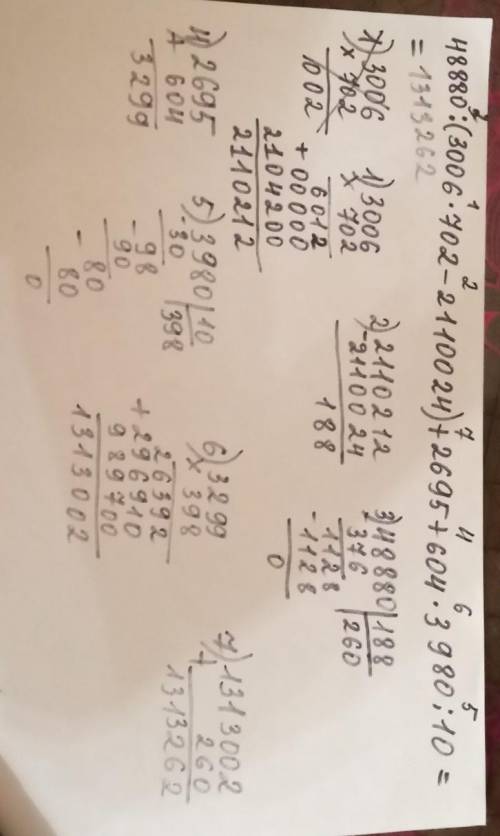 48880:(3006·702-2110024)+2695+604·3980:10=
3 1 2 7 4 6 5
=1313262
1) 3006
× 702
1002
1) 3006
× 702
6012
+ 00000
2104200
2110212
2) 2110212
- 2110024
188
3) 48880 | 188
376 | 260
1128
- 1128
0
4) 2695
604
3299
5) 3980 | 10
- 30 | 398
98
- 90
80
- 80
0
6) 3299
× 398
26392
+ 296910
989700
1313002
7) 1313002
+ 260
1313262